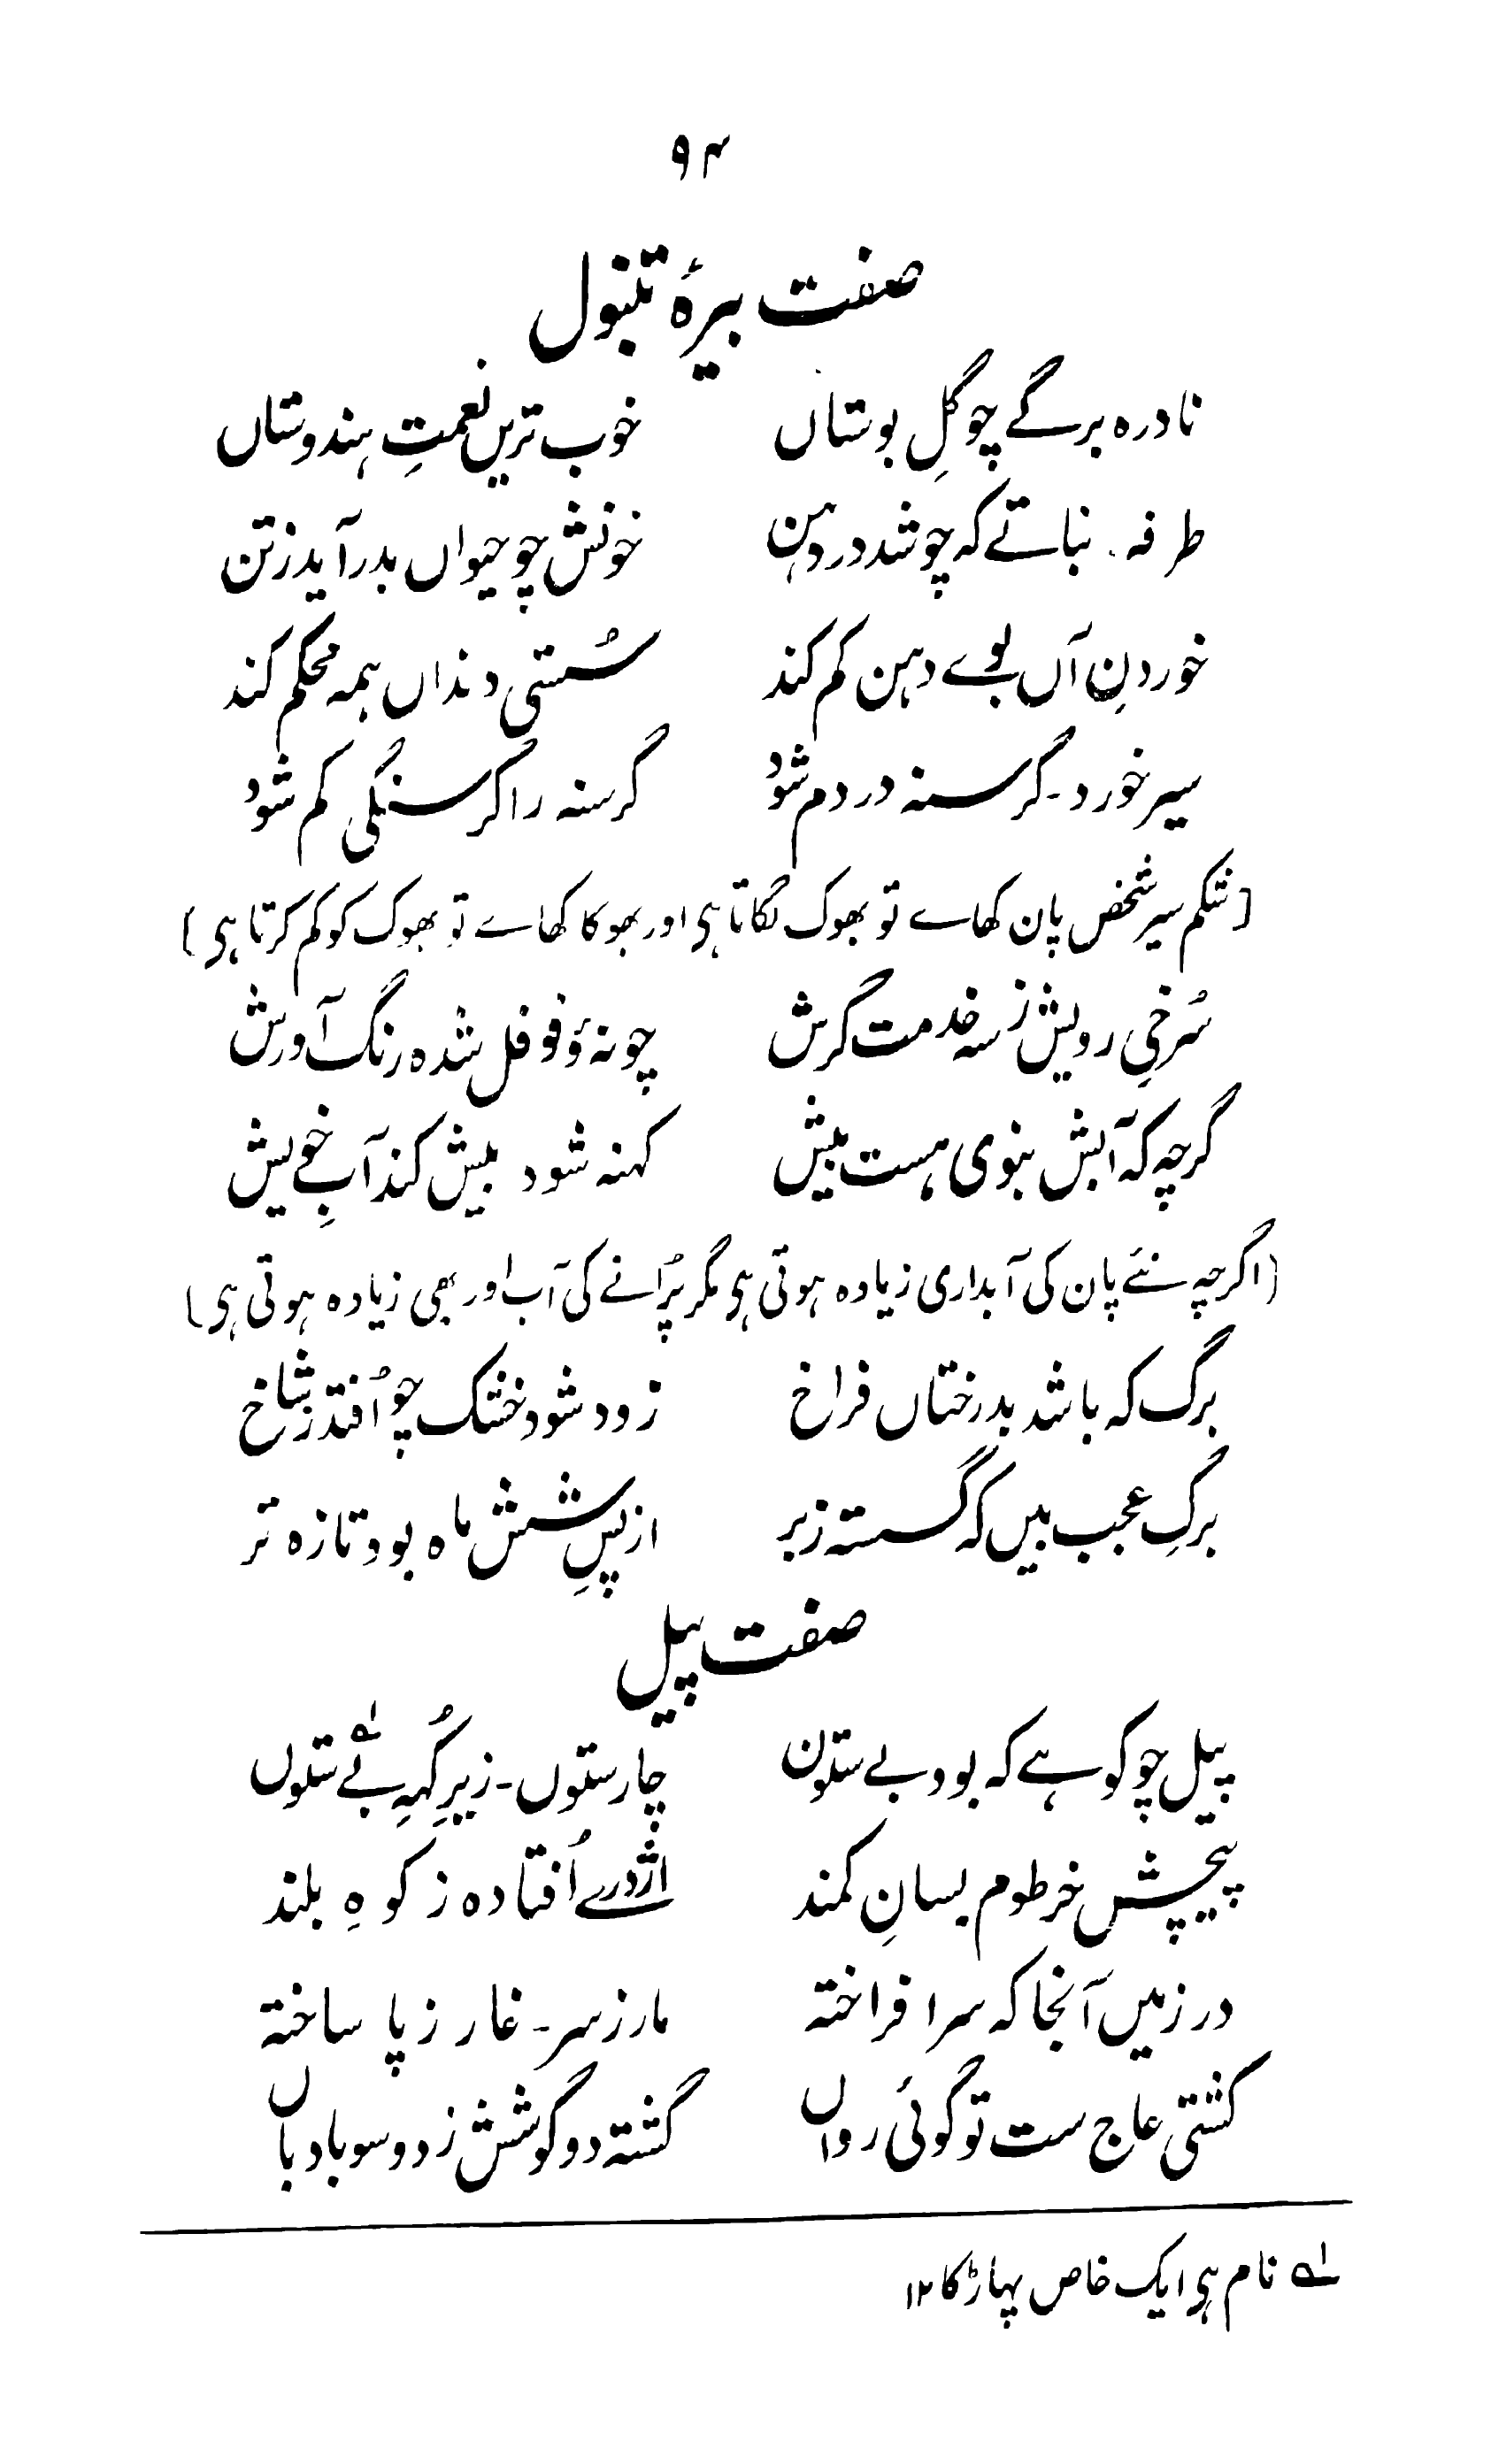 ۹۴
صفت بیرۂ تنبول
نادرہ برگے چو گلِ بوستاں خوب ترین نعمتِ ہندوستاں
طرفہ نباتے کہ چو شد در دہن خونش چو حیواں بدر آید ز تن
خوردنِ آں بوے دہن کم کند سُستی دنداں ہمہ محکم کند
سیر خورد۔ گرسنہ در دم شود گرسنہ را گرسنگی کم شود
(شکم سیر شخص پان کھاے تو بھوک لگاتا ہی اور بھوکا کھاے تو بھوک کو کم کرتا ہی)
سُرخیِ رویش ز سہ خدمت گرش چونہ و فوفل شدہ رنگ آورش
گرچہ کہ آبش بنوی ہست بیش کہنہ شود بیش کند آبِ خویش
(اگرچہ نئے پان کی آبداری زیادہ ہوتی ہی مگر پُرانے کی آب اور بھی زیادہ ہوتی ہی)
برگ کہ باشد بدرختاں فراخ زود شود خشک چو اُفتد ز شاخ
برگِ عجب بیں کہ گسستہ ز بر از پسِ شش ماہ بود تازہ تر
صفت پیل
پیل چو کوہے کہ بود بے ستون چار ستوں۔ زیرِ کُہِ بے ستوں ؎۱
پیچشِ خرطوم بسانِ کمند اژدرے اُفتادہ ز کوہِ بلند
در زمیں آنجا کہ سر افراختہ مار ز سر۔ غار ز پا ساختہ
کشتی عاج ست تو گوئی رواں گشتہ دو گوشش ز دو سو بادباں
؎۱ نام ہی ایک خاص پہاڑ کا ۱۲